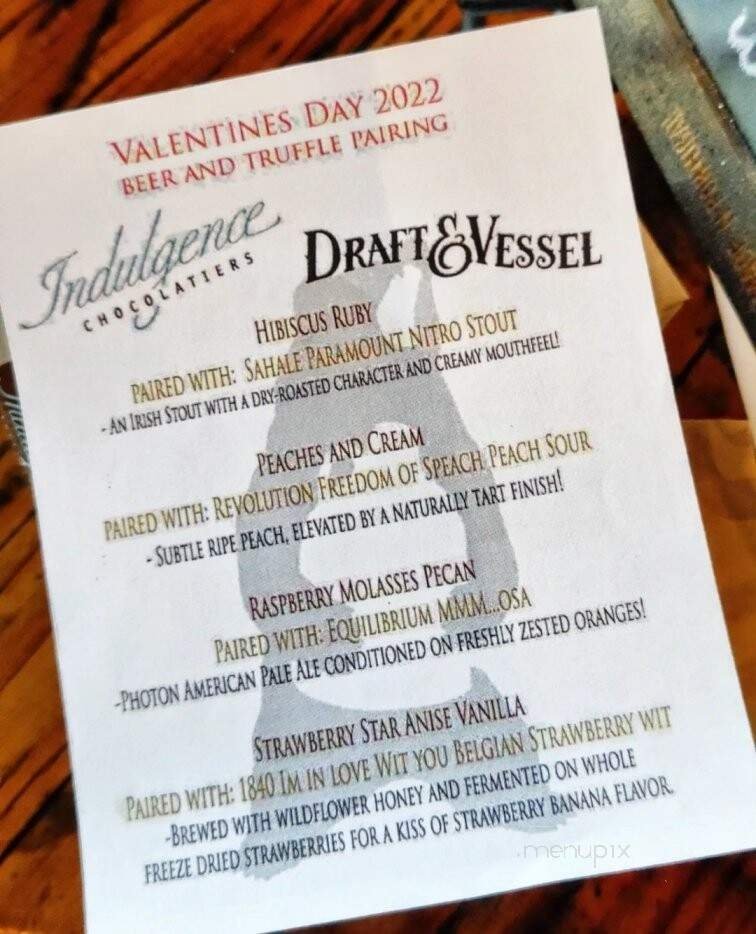 VALENTINES DAY 2022
BEER AND TRUFFLE PAIRING
Indulgence
CHOCOLATIERS
DRAFT & VESSEL
HIBISCUS RUBY
PAIRED WITH: SAHALE PARAMOUNT NITRO STOUT
- AN IRISH STOUT WITH A DRY-ROASTED CHARACTER AND CREAMY MOUTHFEEL!
PEACHES AND CREAM
PAIRED WITH: REVOLUTION FREEDOM OF SPEACH PEACH SOUR
- SUBTLE RIPE PEACH, ELEVATED BY A NATURALLY TART FINISH!
RASPBERRY MOLASSES PECAN
PAIRED WITH: EQUILIBRIUM MMM...OSA
-PHOTON AMERICAN PALE ALE CONDITIONED ON FRESHLY ZESTED ORANGES!
STRAWBERRY STAR ANISE VANILLA
PAIRED WITH: 1840 IM IN LOVE WIT YOU BELGIAN STRAWBERRY WIT
-BREWED WITH WILDFLOWER HONEY AND FERMENTED ON WHOLE
FREEZE DRIED STRAWBERRIES FOR A KISS OF STRAWBERRY BANANA FLAVOR.
menupix